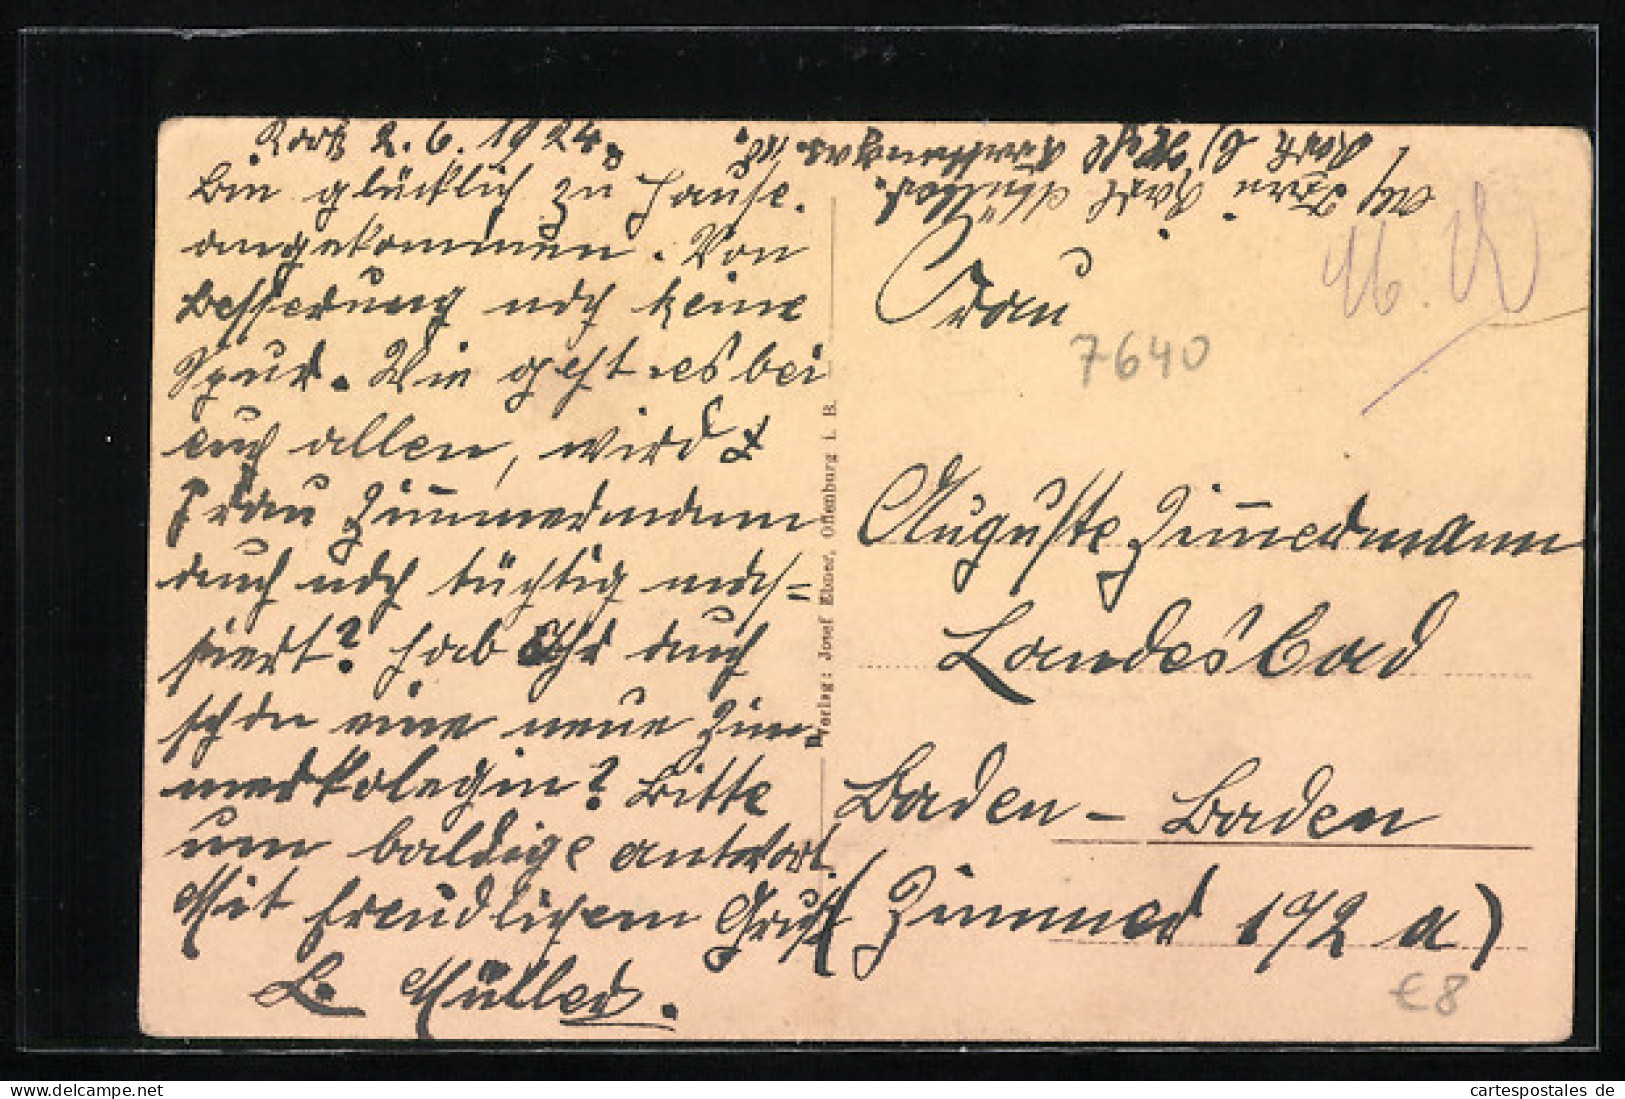 Kork 2.6.1924.
Bin glücklich zu Hause.
angekommen. Von
Besserung noch keine
Spur. Wie geht es bei
euch allen, wird
Frau Zimmermann
auch noch tüchtig mas=
siert? Hab Ihr auch
schon eine neue Zim-
merkolegin? Bitte
um baldige antwort.
Mit freudlichem Gruß
L. Müller.
Frau
7640
Auguste Zimmermann
Landesbad
Baden - Baden
(Zimmer 172 a)
Verlag: Josef Ebner, Offenburg i. B.
€8
cartespostales de